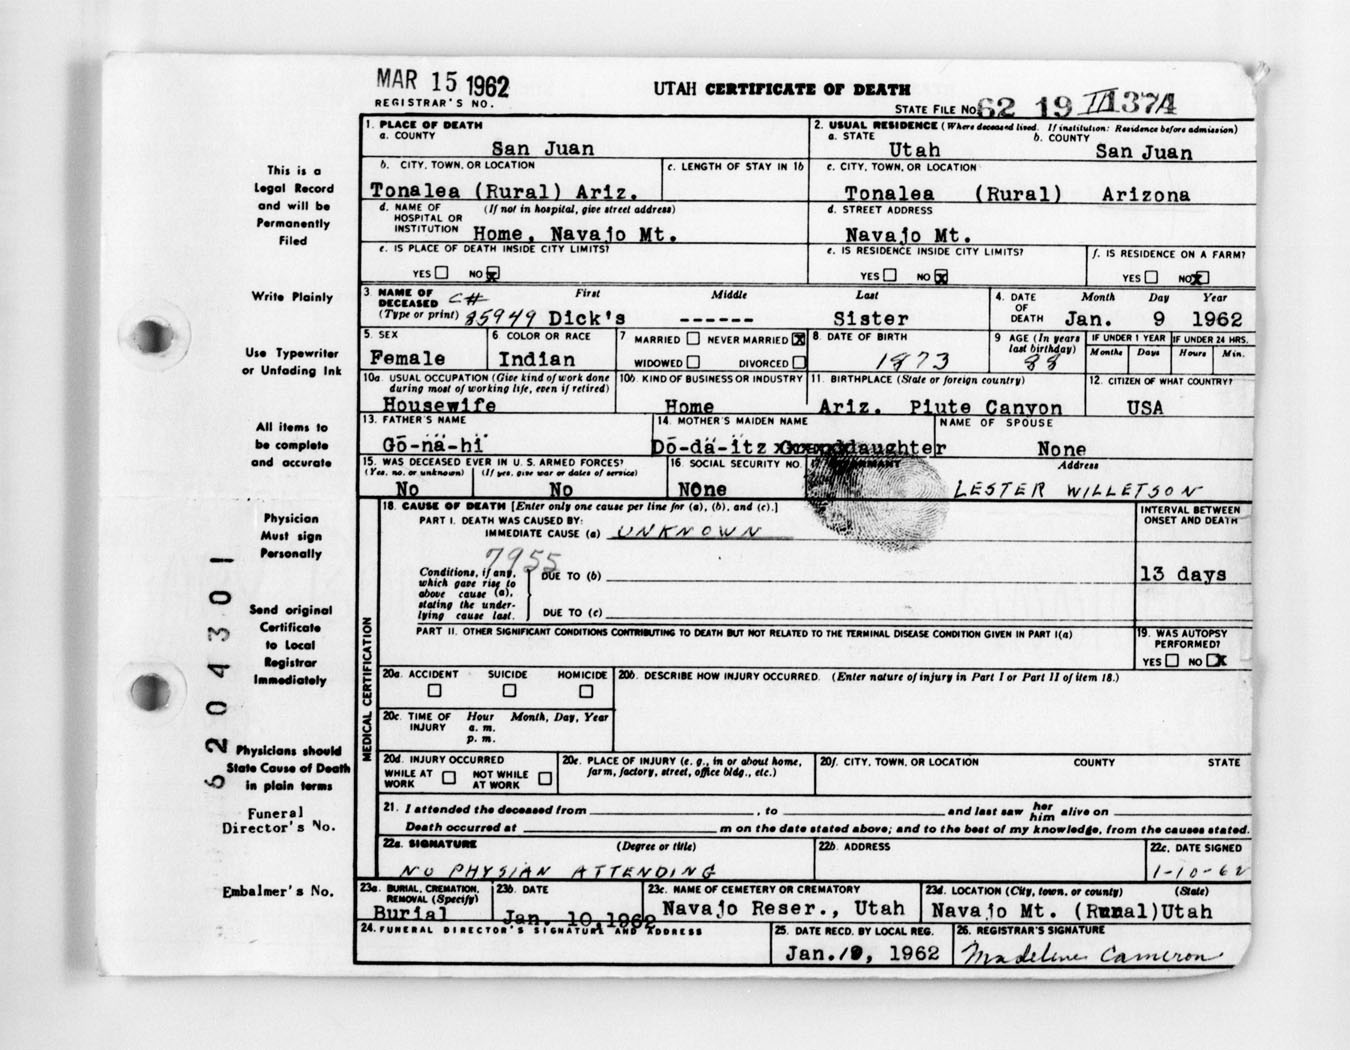 MAR 15 1962
REGISTRAR'S NO.
UTAH CERTIFICATE OF DEATH
STATE FILE NO. 62 19 1374
This is a
Legal Record
and will be
Permanently
Filed
Write Plainly
Use Typewriter
or Unfading Ink
All items to
be complete
and accurate
Physician
Must sign
Personally
Send original
Certificate
to Local
Registrar
Immediately
Physicians should
State Cause of Death
in plain terms
Funeral
Director's No.
Embalmer's No.
6204301
1. PLACE OF DEATH
a. COUNTY
San Juan
2. USUAL RESIDENCE (Where deceased lived. If institution: Residence before admission)
a. STATE b. COUNTY
Utah San Juan
b. CITY, TOWN, OR LOCATION
Tonalea (Rural) Ariz.
c. LENGTH OF STAY IN 1b
c. CITY, TOWN, OR LOCATION
Tonalea (Rural) Arizona
d. NAME OF (If not in hospital, give street address)
HOSPITAL OR
INSTITUTION Home, Navajo Mt.
d. STREET ADDRESS
Navajo Mt.
e. IS PLACE OF DEATH INSIDE CITY LIMITS?
YES NO X
e. IS RESIDENCE INSIDE CITY LIMITS?
YES NO X
f. IS RESIDENCE ON A FARM?
YES NO X
3. NAME OF DECEASED First Middle Last
(Type or print) C# 85949 Dick's ------ Sister
4. DATE OF DEATH Month Day Year
Jan. 9 1962
5. SEX
Female
6. COLOR OR RACE
Indian
7 MARRIED NEVER MARRIED X
WIDOWED DIVORCED
8. DATE OF BIRTH
1873
9 AGE (In years last birthday)
88
IF UNDER 1 YEAR
Months Days
IF UNDER 24 HRS.
Hours Min.
10a. USUAL OCCUPATION (Give kind of work done
during most of working life, even if retired)
Housewife
10b. KIND OF BUSINESS OR INDUSTRY
Home
11. BIRTHPLACE (State or foreign country)
Ariz. Piute Canyon
12. CITIZEN OF WHAT COUNTRY?
USA
13. FATHER'S NAME
Gō-nä-hi
14. MOTHER'S MAIDEN NAME
Dō-dä-itz daughter
NAME OF SPOUSE
None
15. WAS DECEASED EVER IN U. S. ARMED FORCES?
(Yes, no, or unknown) (If yes, give war or dates of service)
No No
16. SOCIAL SECURITY NO.
None
Address
LESTER WILLETSON
MEDICAL CERTIFICATION
18. CAUSE OF DEATH [Enter only one cause per line for (a), (b), and (c).]
PART I. DEATH WAS CAUSED BY:
IMMEDIATE CAUSE (a) UNKNOWN
7955
Conditions, if any,
which gave rise to
above cause (a),
stating the under-
lying cause last.
DUE TO (b)
DUE TO (c)
INTERVAL BETWEEN
ONSET AND DEATH
13 days
PART II. OTHER SIGNIFICANT CONDITIONS CONTRIBUTING TO DEATH BUT NOT RELATED TO THE TERMINAL DISEASE CONDITION GIVEN IN PART I(a)
19. WAS AUTOPSY
PERFORMED?
YES NO X
20a. ACCIDENT SUICIDE HOMICIDE
20b. DESCRIBE HOW INJURY OCCURRED. (Enter nature of injury in Part I or Part II of item 18.)
20c. TIME OF Hour Month, Day, Year
INJURY a. m.
p. m.
20d. INJURY OCCURRED
WHILE AT NOT WHILE
WORK AT WORK
20e. PLACE OF INJURY (e. g., in or about home,
farm, factory, street, office bldg., etc.)
20f. CITY, TOWN, OR LOCATION COUNTY STATE
21. I attended the deceased from , to and last saw her him alive on
Death occurred at m on the date stated above; and to the best of my knowledge, from the causes stated.
22a. SIGNATURE (Degree or title)
NO PHYSIAN ATTENDING
22b. ADDRESS
22c. DATE SIGNED
1-10-62
23a. BURIAL, CREMATION,
REMOVAL (Specify)
Burial
23b. DATE
Jan. 10, 1962
23c. NAME OF CEMETERY OR CREMATORY
Navajo Reser., Utah
23d. LOCATION (City, town, or county) (State)
Navajo Mt. (Rural) Utah
24. FUNERAL DIRECTOR'S SIGNATURE AND ADDRESS
25. DATE RECD. BY LOCAL REG.
Jan. 10, 1962
26. REGISTRAR'S SIGNATURE
Madeline Cameron